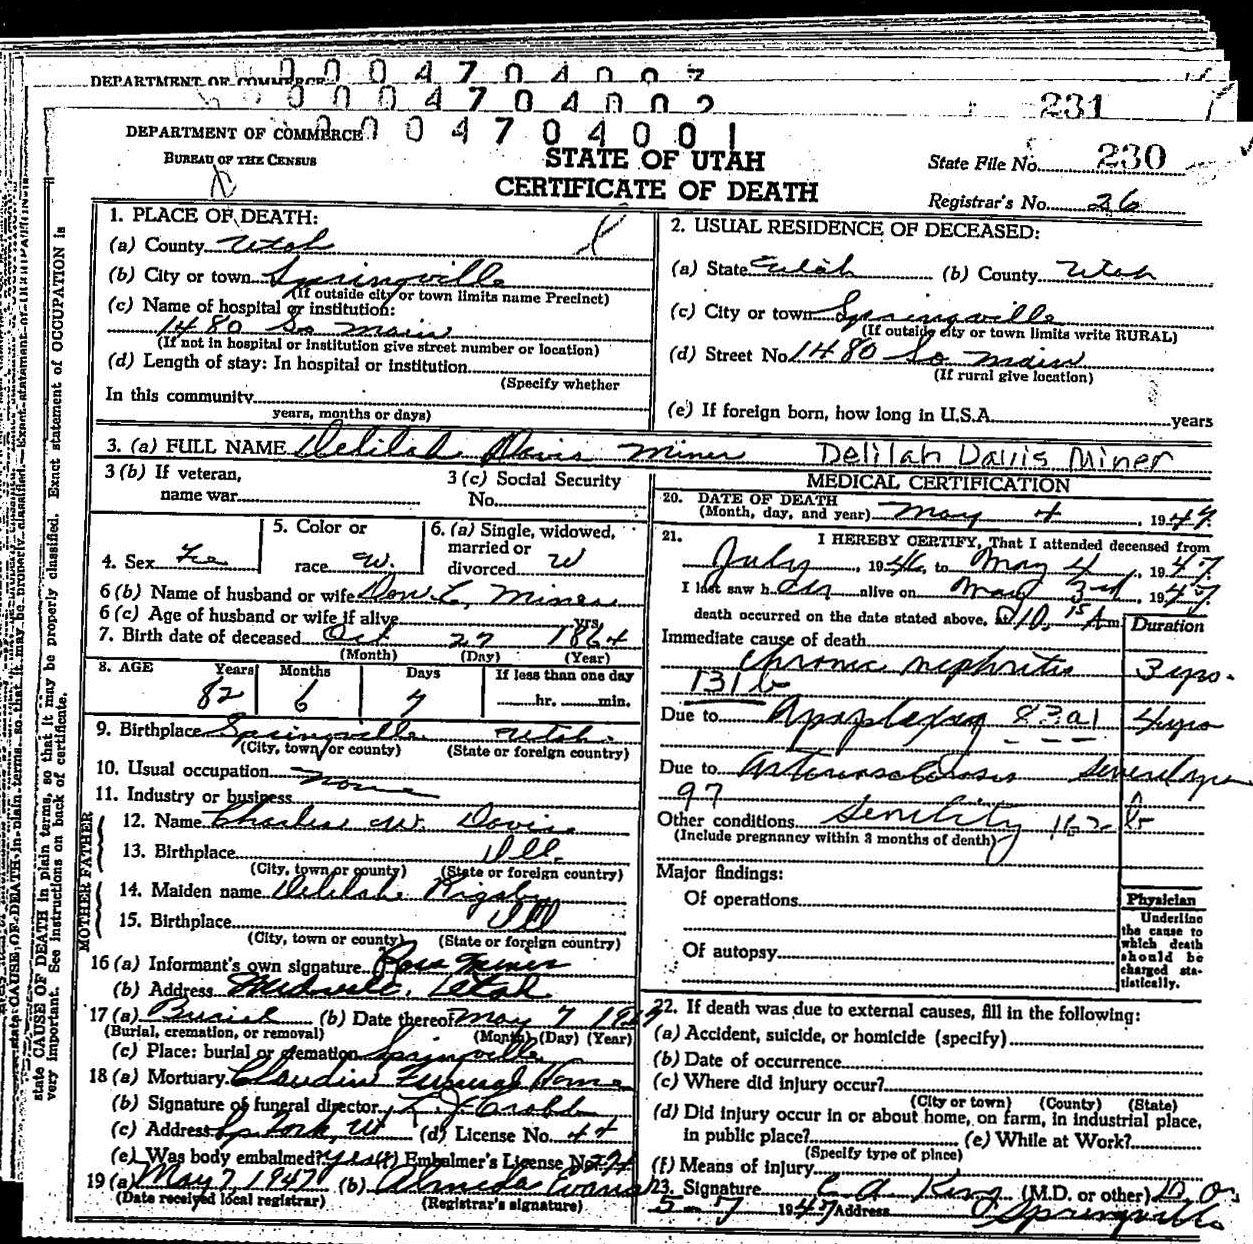 DEPARTMENT OF COMMERCE 0004704003
0004704002 231
DEPARTMENT OF COMMERCE 0004704001
BUREAU OF THE CENSUS
STATE OF UTAH
CERTIFICATE OF DEATH
State File No. 230
Registrar's No. 26
state CAUSE OF DEATH in plain terms, so that it may be properly classified. Exact statement of OCCUPATION is
very important. See instructions on back of certificate.
1. PLACE OF DEATH:
(a) County Utah
(b) City or town Springville
(If outside city or town limits name Precinct)
(c) Name of hospital or institution:
1480 So Main
(If not in hospital or institution give street number or location)
(d) Length of stay: In hospital or institution
(Specify whether
In this community
years, months or days)
2. USUAL RESIDENCE OF DECEASED:
(a) State Utah (b) County Utah
(c) City or town Springville
(If outside city or town limits write RURAL)
(d) Street No 1480 So Main
(If rural give location)
(e) If foreign born, how long in U.S.A. years
3. (a) FULL NAME Delilah Davis Miner Delilah Davis Miner
3 (b) If veteran,
name war
3 (c) Social Security
No.
4. Sex Fe
5. Color or
race W.
6. (a) Single, widowed,
married or
divorced W
6 (b) Name of husband or wife Don C. Miner
6 (c) Age of husband or wife if alive yrs.
7. Birth date of deceased Oct 27 1864
(Month) (Day) (Year)
8. AGE Years Months Days If less than one day
82 6 7 hr. min.
9. Birthplace Springville Utah
(City, town, or county) (State or foreign country)
10. Usual occupation None
11. Industry or business
FATHER
12. Name Charles W. Davis
13. Birthplace Ill.
(City, town or county) (State or foreign country)
MOTHER
14. Maiden name Delilah Rigsby
15. Birthplace Ill
(City, town or county) (State or foreign country)
16 (a) Informant's own signature Ross Miner
(b) Address Midvale, Utah
17 (a) Burial (b) Date thereof May 7 1947
(Burial, cremation, or removal) (Month) (Day) (Year)
(c) Place: burial or cremation Springville
18 (a) Mortuary Claudin Funeral Home
(b) Signature of funeral director
(c) Address Sp Fork, Ut (d) License No. 44
(e) Was body embalmed? yes (f) Embalmer's License No
19 (a) May 7, 1947 (b) Almeda Evans
(Date received local registrar) (Registrar's signature)
MEDICAL CERTIFICATION
20. DATE OF DEATH
(Month, day, and year) May 4, 1947
21. I HEREBY CERTIFY, That I attended deceased from
July, 1946, to May 4, 1947
I last saw her alive on May 3rd, 1947
death occurred on the date stated above, at 10.15 A m.
Duration
Immediate cause of death
Chronic nephritis 3 yrs.
131b
Due to Apoplexy 83a1 4 yrs
Due to Arteriosclerosis Several yrs
97
Other conditions Senility 162 b
(Include pregnancy within 3 months of death)
Major findings:
Of operations
Of autopsy
Physician
Underline
the cause to
which death
should be
charged sta-
tistically.
22. If death was due to external causes, fill in the following:
(a) Accident, suicide, or homicide (specify)
(b) Date of occurrence
(c) Where did injury occur?
(City or town) (County) (State)
(d) Did injury occur in or about home, on farm, in industrial place,
in public place? (e) While at Work?
(Specify type of place)
(f) Means of injury
23. Signature C. A. King (M.D. or other) D.O.
5-7 1947 Address Springville